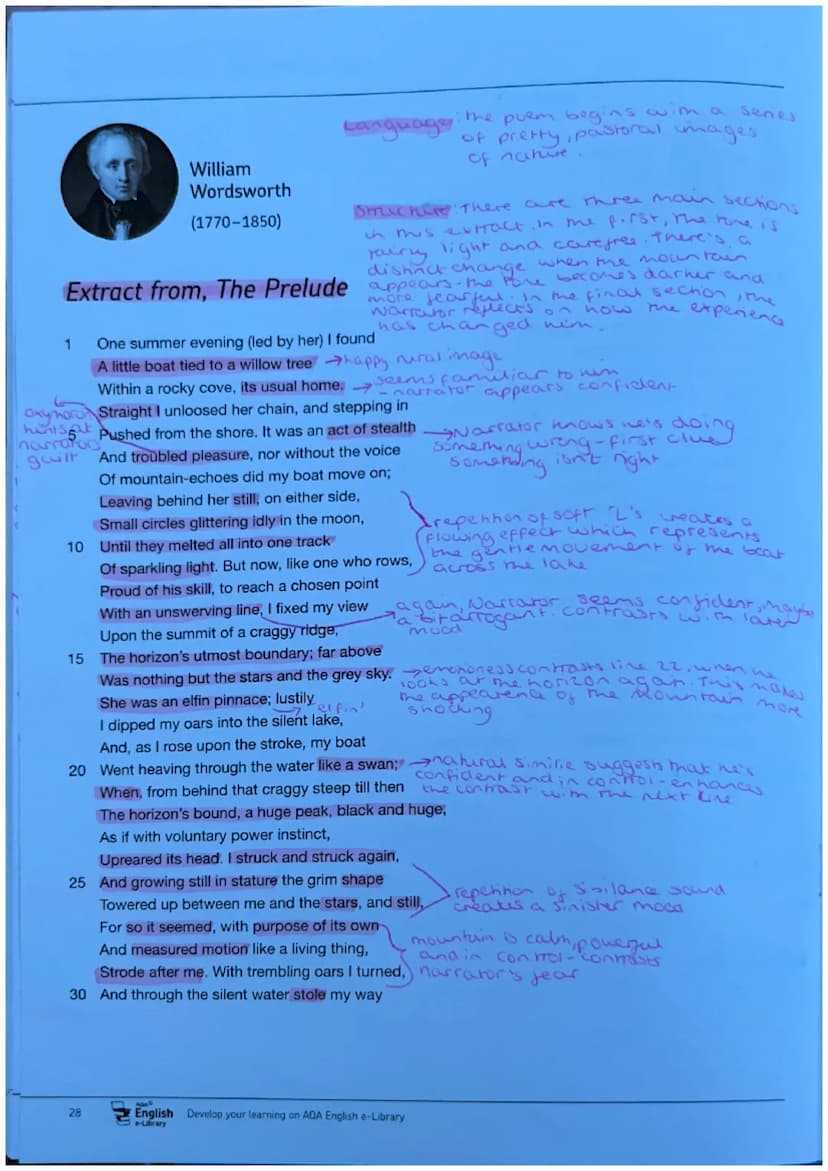 Language: the poem begins with a series
of pretty, pastoral images
of nature.
William
Wordsworth
(1770–1850)
Structure: There are three main sections
in this extract. In the first, the tone is
fairly light and carefree. There's a
distinct change when the mountain
appears - the tone becomes darker and
more fearful. In the final section, the
Narrator reflects on how the experience
has changed him.
Extract from, The Prelude
1 One summer evening (led by her) I found
A little boat tied to a willow tree → happy rural image
Within a rocky cove, its usual home. → seems familiar to him
- narrator appears confident
Straight I unloosed her chain, and stepping in
oxymoron
hints at
narrators
guilt
5 Pushed from the shore. It was an act of stealth → Narrator knows he's doing
something wrong - first clue
something isn't right
And troubled pleasure, nor without the voice
Of mountain-echoes did my boat move on;
Leaving behind her still, on either side,
Small circles glittering idly in the moon,
10 Until they melted all into one track
Of sparkling light. But now, like one who rows,
repetition of soft 'L's creates a
flowing effect which represents
the gentle movement of the boat
across the lake
Proud of his skill, to reach a chosen point
With an unswerving line, I fixed my view
again, Narrator seems confident, maybe
a bit arrogant. contrasts with later
mood
Upon the summit of a craggy ridge,
15 The horizon's utmost boundary; far above
Was nothing but the stars and the grey sky.
→ emptiness contrasts line 22, when he
looks at the horizon again. This makes
the appearence of the mountain more
shocking
She was an elfin pinnace; lustily
elfin'
I dipped my oars into the silent lake,
And, as I rose upon the stroke, my boat
20 Went heaving through the water like a swan;
→ natural similie suggests that he's
confident and in control - enhances
the contrast with the next line
When, from behind that craggy steep till then
The horizon's bound, a huge peak, black and huge,
As if with voluntary power instinct,
Upreared its head. I struck and struck again,
25 And growing still in stature the grim shape
Towered up between me and the stars, and still,
repetition of sibilance sound
creates a sinister mood
For so it seemed, with purpose of its own
And measured motion like a living thing,
Strode after me. With trembling oars I turned,
mountain is calm, powerful
and in control - contrasts
narrator's fear
30 And through the silent water stole my way
28 AQA English e-Library Develop your learning on AQA English e-Library